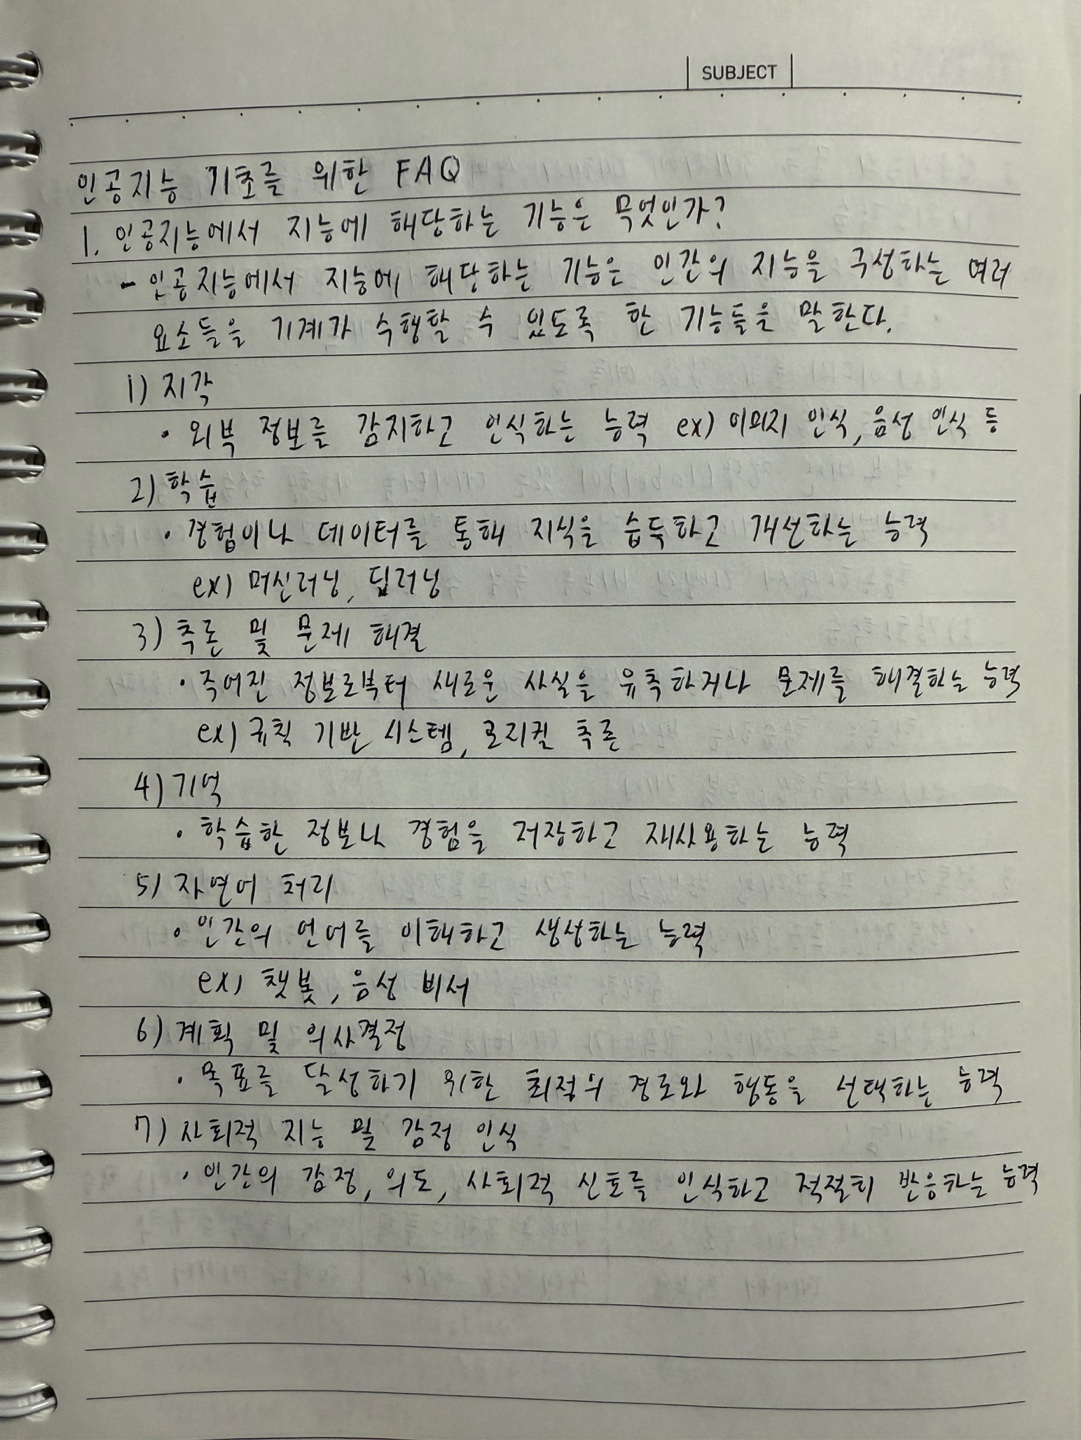 SUBJECT
인공지능 기초를 위한 FAQ
1. 인공지능에서 지능에 해당하는 기능은 무엇인가?
- 인공지능에서 지능에 해당하는 기능은 인간의 지능을 구성하는 여러
요소들을 기계가 수행할 수 있도록 한 기능들을 말한다.
1) 지각
· 외부 정보를 감지하고 인식하는 능력 ex) 이미지 인식, 음성 인식 등
2) 학습
· 경험이나 데이터를 통해 지식을 습득하고 개선하는 능력
ex) 머신러닝, 딥러닝
3) 추론 및 문제 해결
· 주어진 정보로부터 새로운 사실을 유추하거나 문제를 해결하는 능력
ex) 규칙 기반 시스템, 로지컬 추론
4) 기억
· 학습한 정보나 경험을 저장하고 재사용하는 능력
5) 자연어 처리
· 인간의 언어를 이해하고 생성하는 능력
ex) 챗봇, 음성 비서
6) 계획 및 의사결정
· 목표를 달성하기 위한 최적의 경로와 행동을 선택하는 능력
7) 사회적 지능 밑 감정 인식
· 인간의 감정, 의도, 사회적 신호를 인식하고 적절히 반응하는 능력